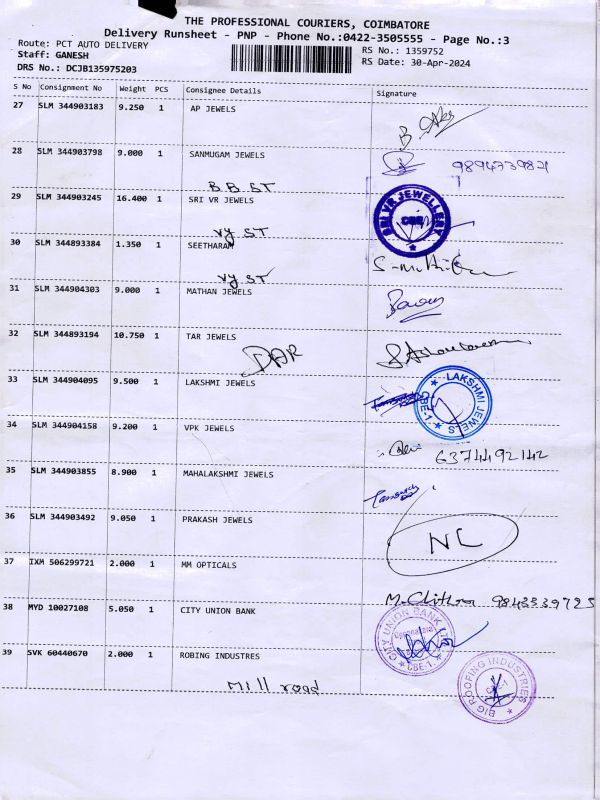 THE PROFESSIONAL COURIERS, COIMBATORE
Delivery Runsheet - PNP - Phone No.:0422-3505555 - Page No.:3
Route: PCT AUTO DELIVERY
RS No.: 1359752
Staff: GANESH
RS Date: 30-Apr-2024
DRS No.: DCJB135975203
S No Consignment No Weight PCS Consignee Details Signature
27 SLM 344903183 9.250 1 AP JEWELS
28 SLM 344903798 9.000 1 SANMUGAM JEWELS 9894739821
B.B.ST
29 SLM 344903245 16.400 1 SRI VR JEWELS
SRI VR JEWELLERY CBE
Vy ST
30 SLM 344893384 1.350 1 SEETHARAM
Vy ST
31 SLM 344904303 9.000 1 MATHAN JEWELS
32 SLM 344893194 10.750 1 TAR JEWELS
DAR
33 SLM 344904095 9.500 1 LAKSHMI JEWELS
LAKSHMI JEWELS CBE-1
34 SLM 344904158 9.200 1 VPK JEWELS
6374492142
35 SLM 344903855 8.900 1 MAHALAKSHMI JEWELS
36 SLM 344903492 9.050 1 PRAKASH JEWELS
NL
37 IXM 506299721 2.000 1 MM OPTICALS
M. Chitra 9843339725
38 MYD 10027108 5.050 1 CITY UNION BANK
CITY UNION BANK LTD CBE-1
39 SVK 60440670 2.000 1 ROBING INDUSTRIES
BIG ROOFING INDUSTRIES
Mill road